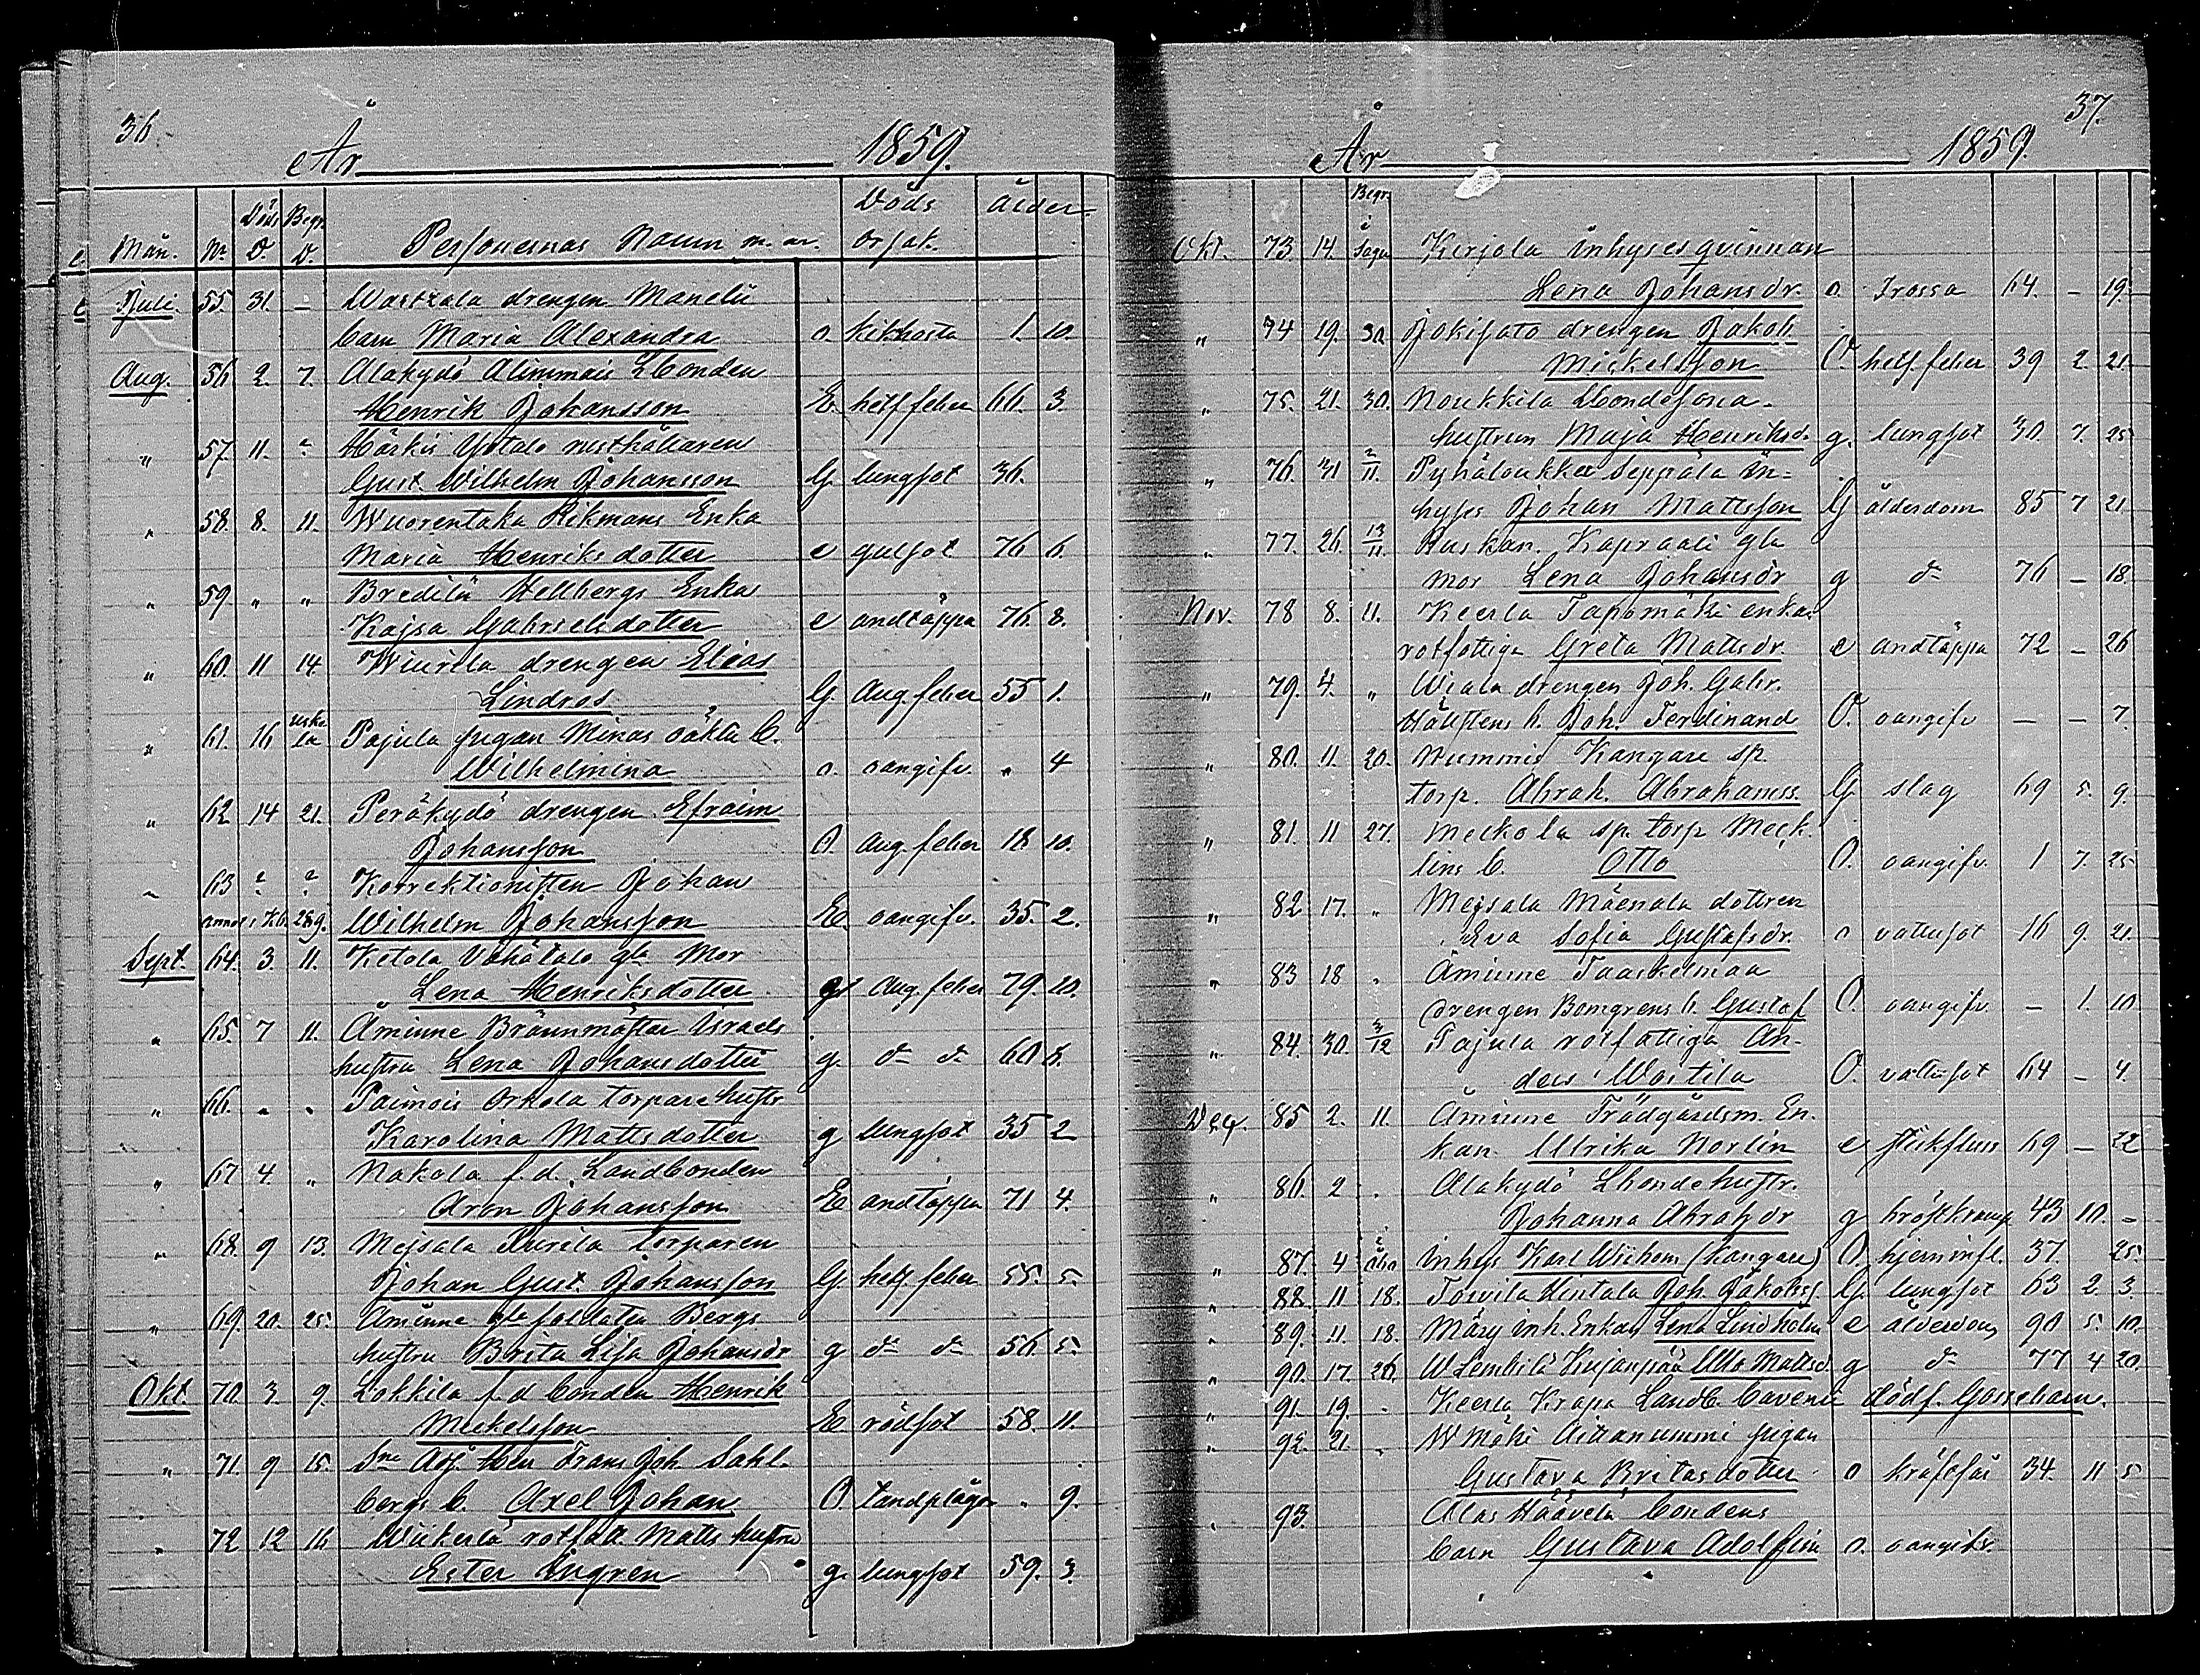 36.
År 1859.
Mån. Nr Döds D. Begr. D. Personernas Namn m. m. Döds orsak. Ålder.
Juli. 55. 31. — drengen Manelii
barn Maria Alexandra o. kikhosta 1. 10.
Aug. 56 2. 7. Alakydö Alimmais Lbonden
Henrik Johansson E. hetf feber 66. 3.
" 57. 11. " Härkis Yötalo rusthållaren
Gust. Wilhelm Johansson G. lungsot 36.
" 58. 8. 11. Wuorentaka Rikmans Enka
Maria Henriksdotter e gulsot 76 6.
" 59. " " Bredilä Hellbergs Enka
Kajsa Gabrielsdotter e andtäppa 76. 8.
" 60. 11 14. Wiurila drengen Elias
Lindros G Aug. feber 55 1.
" 61. 16 uske la Pajula pigan Minas oäkta b.
Wilhelmina o. oangifv. " 4
" 62 14 21. Peräkydö drengen Efraim
Johansson O. Aug. feber 18 10.
" 63 Korrektionisten Johan
Wilhelm Johansson E. oangifv. 35. 2.
Sept. 64. 3. 11. Ketola Vähätalo gla Mor
Lena Henriksdotter g Aug. feber 79. 10.
" 65. 7 11. Åminne Brännmästar Israels
hustru Lena Johansdotter g. d:o d:o 60 8.
" 66. " " Paimois Orkola torpare hustr
Karolina Mattsdotter g lungsot 35 2
" 67 4. " Nakola f. d. Landbonden
Aron Johansson E andtäppa 71 4.
" 68. 9 13. Mejsala Purila torparen
Johan Gust. Johansson G. hetf feber 55. 5.
" 69. 20. 25. Åminne gla soldaten Bergs
hustru Brita Lisa Johansdr g d:o d:o 56 5.
Okt. 70. 3. 9. Lokkila f d bonden Henrik
Mickelsson E. rödsot 58. 11.
" 71. 9 15. Sne Adj. Herr Frans Joh. Sahl-
bergs b. Axel Johan O. Tandplågor " 9.
" 72 12 16 Wiikerlä rotfatt. Matts hustru
Ester Engren g. lungsot 59. 3.
37.
År 1859.
Begr.
Okt. 73. 14. i Sagu Kerjola inhysesqvinnan
Lena Johansdr. o. Trossa 64. — 19.
" 74 19. 30 Jokisato drengen Jakob
Mickelsson O. hetf. feber 39 2. 21
" 75. 21. 30. Noukkila Lbondesona-
hustrun Maja Henriksd. g. lungsot 30. 7. 25
" 76. 31 2/11. Pyhäloukka Seppälä in-
hyses Johan Mattsson G ålderdom 85 7 21
" 77. 26. 13/11. Ruskan. Kapraali gla
mor Lena Johansdr g d:o 76 — 18.
Nov. 78 8. 11. Keerla Tapomäki enka
rotfattiga Greta Mattsdr. e andtäppa 72 — 26
" 79. 4. " Wiala drengen Joh. Gabr.
Hällstens b. Joh. Ferdinand O. oangifv — — 7.
" 80. 11. 20. Nummis Kangare sp.
torp. Abrah. Abrahamss. G. slag 69 5. 9.
" 81. 11 27. Meckola sp. torp Meck-
lins b. Otto O. oangifv. 1 7. 25
" 82 17. " Mejsala Mäenala dottren
Eva Sofia Gustafsdr. o vattusot 16 9. 21.
" 83 18 " Åminne Taaskelmaa
drengen Bomgrens b. Gustaf O. oangifv. — 1. 10
" 84. 30. 3/12 Pajula rotfattiga An-
ders Wartila O. vattusot 64 — 4.
Dec. 85 2. 11. Åminne Trädgårdsm. En-
kan Ulrika Norlin e flickfluss 69 — 22
" 86. 2 " Alakydö Lbonde hustr.
Johanna Abrahsdr g bröstkramp 43 10. —
" 87. 4 i åbo inhys Karl Wilhem (Kangare) O. hjerninfl. 37. 25.
" 88. 11 18. Toivila Hintala Joh. Jakobss. G. lungsot 63 2. 3.
" 89. 11. 18. Märy inh. Enkan Lena Lindholm e ålderdom 90 5. 10.
" 90. 17. 26. W Lembilä Kujanpää Ulla Mattsd. g d:o 77 4 20.
" 91. 19. " Keerla Krapa Landb. Cavenii dödf. Gossebarn.
" 92. 21. " W mäki Aittanummi pigan
Gustava Britasdotter o kräftsår 34. 11 5
" 93. Alas Häävelä bondens
barn Gustava Adolfina o. oangifv.